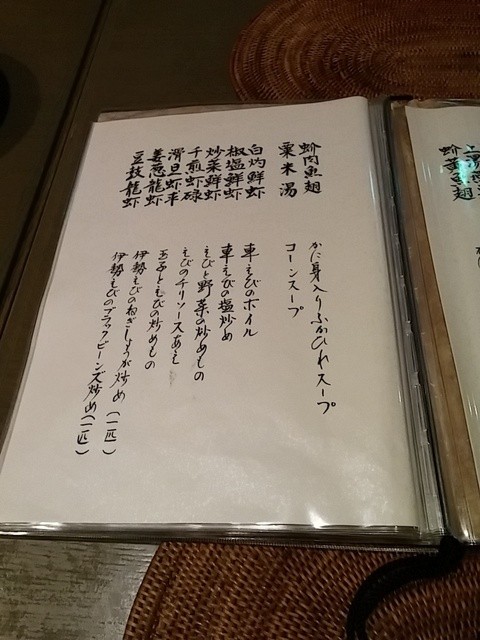 蚧肉魚翅 かに身入りふかひれスープ
粟米湯 コーンスープ
白灼鮮虾 車えびのボイル
椒塩鮮虾 車えびの塩炒め
炒菜鮮虾 えびと野菜の炒めもの
干煎虾碌 えびのチリソースあえ
滑旦虾平 玉子とえびの炒めもの
姜葱龍虾 伊勢えびのねぎしょうが炒め(一匹)
豆豉龍虾 伊勢えびのブラックビーンズ炒め(一匹)